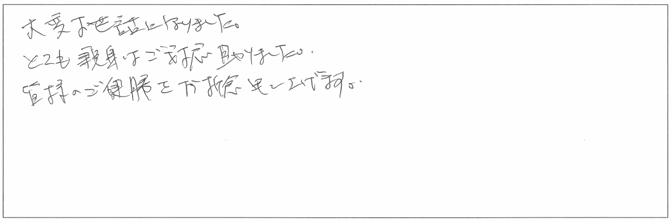 大変お世話になりました。
とても親身なご対応助かりました。
皆様のご健勝をお祈念申し上げます。